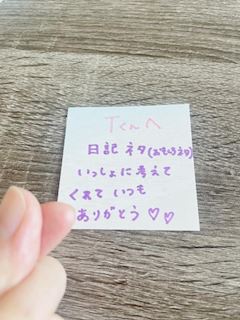 Tくんへ
日記 ネタ(おもしろネタ)
いっしょに考えて
くれて いつも
ありがとう♡♡